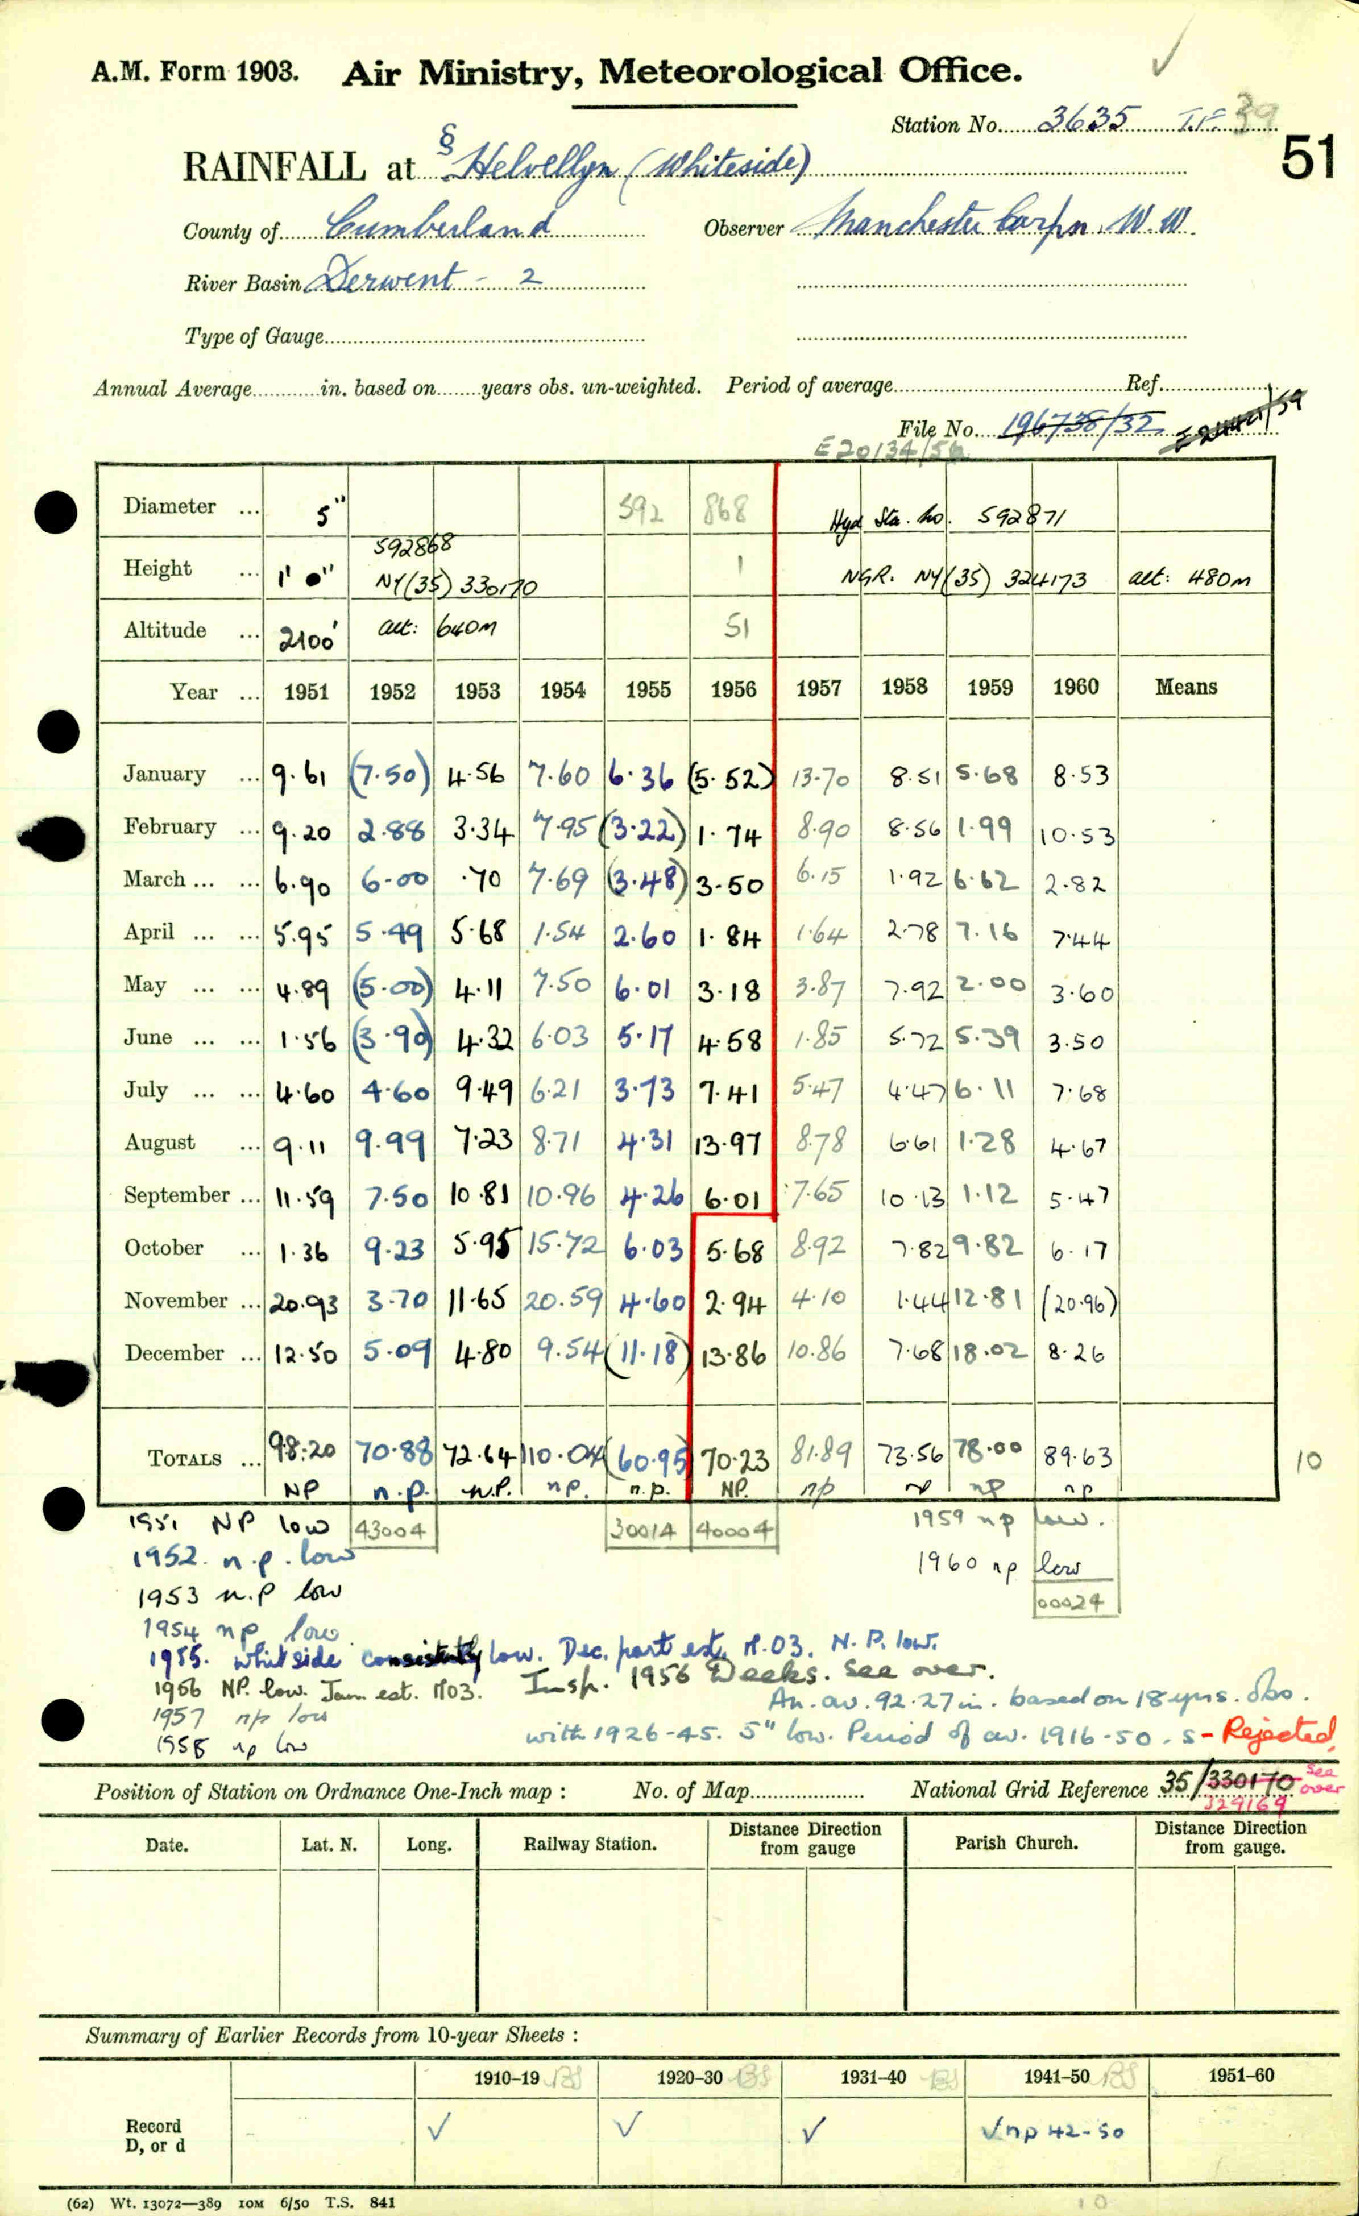 A.M. Form 1903. Air Ministry, Meteorological Office.
Station No. 3635 39
51
RAINFALL at § Helvellyn (Whiteside)
County of Cumberland Observer Manchester Corpn. W.W.
River Basin Derwent - 2
Type of Gauge
Annual Average in. based on years obs. un-weighted. Period of average Ref.
File No. 196738/32
E20134/56
Diameter ... 5" 592 868 Hyd Sta. No. 592871
592868
Height ... 1' 0" NY(35) 330170 1 NGR. NY(35) 324173 alt: 480m
Altitude ... 2100' alt: 640m 51
Year ... 1951 1952 1953 1954 1955 1956 1957 1958 1959 1960 Means
January ... 9.61 (7.50) 4.56 7.60 6.36 (5.52) 13.70 8.51 5.68 8.53
February ... 9.20 2.88 3.34 7.95 (3.22) 1.74 8.90 8.56 1.99 10.53
March ... ... 6.90 6.00 .70 7.69 (3.48) 3.50 6.15 1.92 6.62 2.82
April ... ... 5.95 5.49 5.68 1.54 2.60 1.84 1.64 2.78 7.16 7.44
May ... ... 4.89 (5.00) 4.11 7.50 6.01 3.18 3.87 7.92 2.00 3.60
June ... ... 1.56 (3.90) 4.32 6.03 5.17 4.58 1.85 5.72 5.39 3.50
July ... ... 4.60 4.60 9.49 6.21 3.73 7.41 5.47 4.47 6.11 7.68
August ... 9.11 9.99 7.23 8.71 4.31 13.97 8.78 6.61 1.28 4.67
September ... 11.59 7.50 10.81 10.96 4.26 6.01 7.65 10.13 1.12 5.47
October ... 1.36 9.23 5.95 15.72 6.03 5.68 8.92 7.82 9.82 6.17
November ... 20.93 3.70 11.65 20.59 4.60 2.94 4.10 1.44 12.81 (20.96)
December ... 12.50 5.09 4.80 9.54 (11.18) 13.86 10.86 7.68 18.02 8.26
TOTALS ... 98.20 70.88 72.64 110.04 (60.95) 70.23 81.89 73.56 78.00 89.63 10
NP n.p. n.P. np. n.p. NP. np np np np
1951 NP low 43004 30014 40004 1959 np low.
1952 n.p. low 1960 np low
1953 n.P low 00024
1954 np low
1955. Whiteside consistently low. Dec. part est. M.03. N.P. low.
1956 NP. low. Jan est. M03. Insp. 1956 Weeks. See over.
1957 np low An. av. 92.27 in. based on 18 yrs. obs.
1958 np low with 1926-45. 5" low. Period of av. 1916-50. S - Rejected.
Position of Station on Ordnance One-Inch map : No. of Map National Grid Reference 35/330170 see over
329169
Date. Lat. N. Long. Railway Station. Distance Direction from gauge Parish Church. Distance Direction from gauge.
Summary of Earlier Records from 10-year Sheets :
1910-19 BS 1920-30 BS 1931-40 BS 1941-50 BS 1951-60
Record D, or d ✓ ✓ ✓ ✓ np 42-50
(62) Wt. 13072—389 10M 6/50 T.S. 841
10